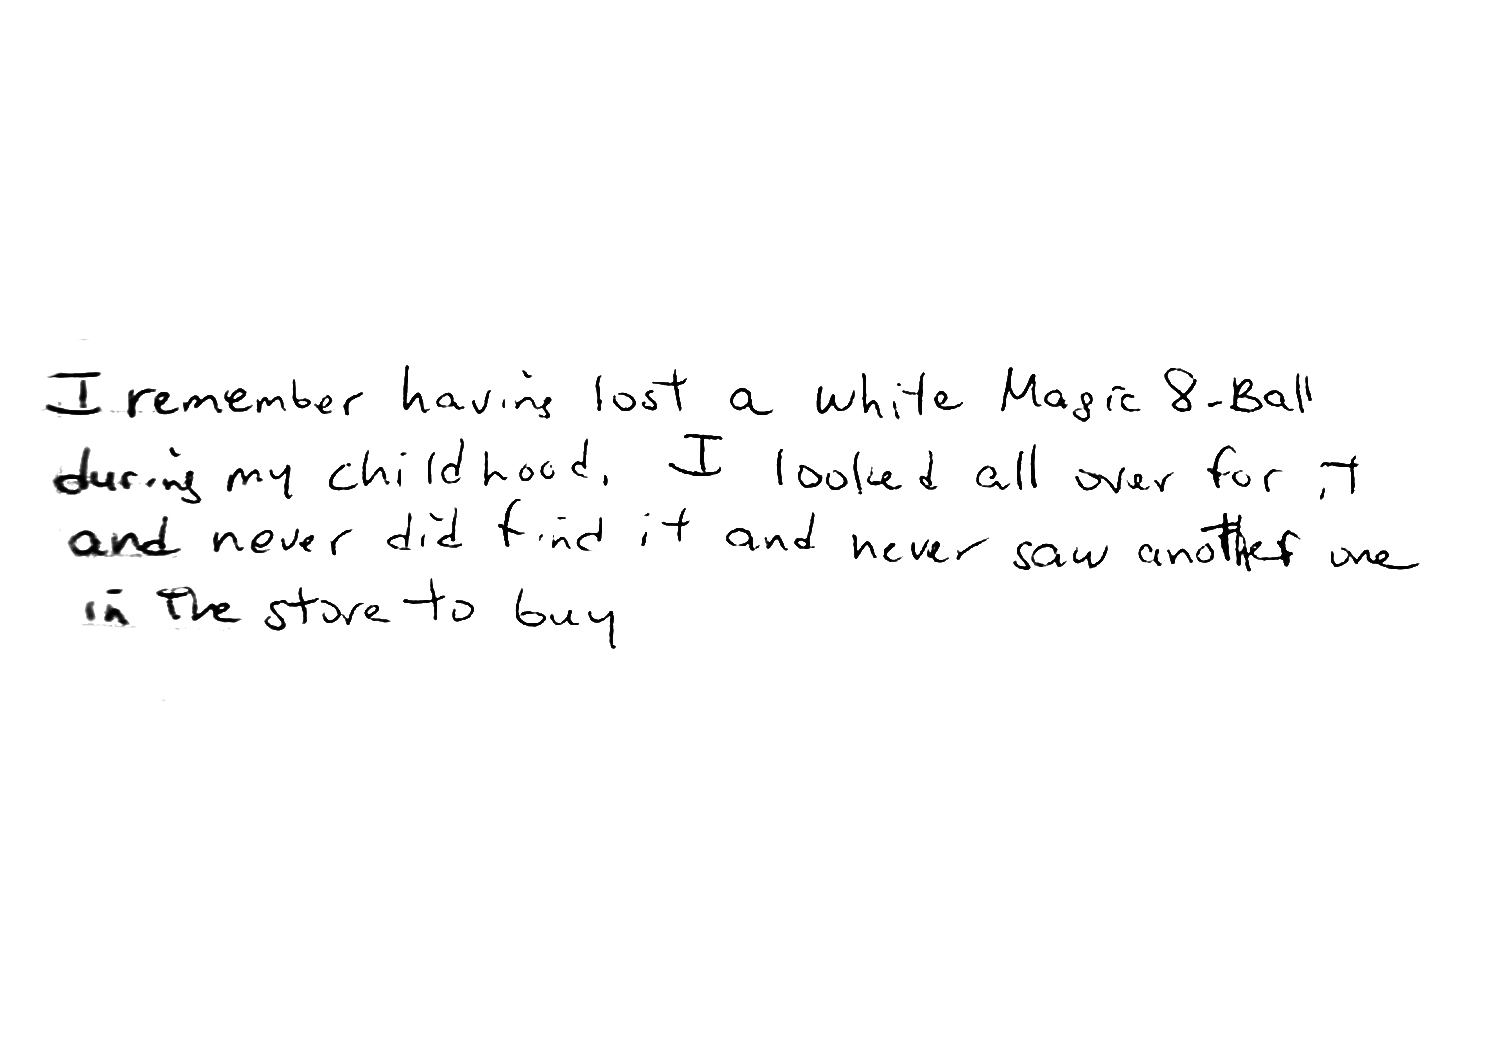 I remember having lost a white Magic 8-Ball
during my childhood. I looked all over for it
and never did find it and never saw another one
in the store to buy